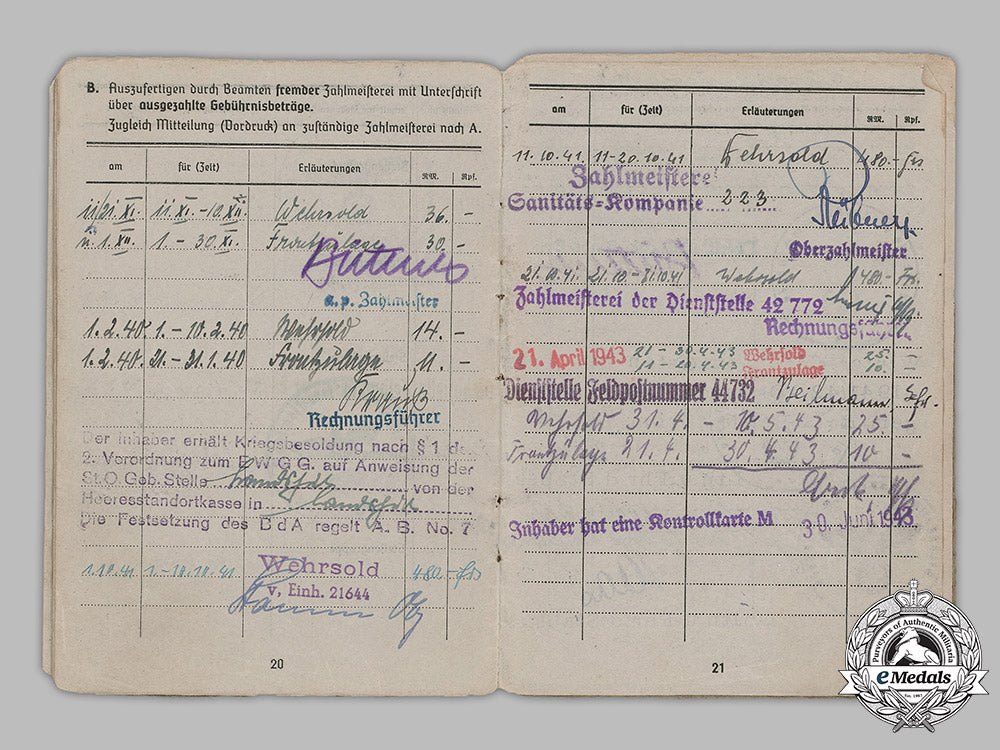 B. Auszufertigen durch Beamten fremder Zahlmeisterei mit Unterschrift
über ausgezahlte Gebührnisbeträge.
Zugleich Mitteilung (Vordruck) an zuständige Zahlmeisterei nach A.
am für (Zeit) Erläuterungen RM. Rpf.
XI. 11. XI. -10. XII. Wehrsold 36. -
1. XII. 1. - 30. XI. Frontzulage 30. -
a.p. Zahlmeister
1. 2. 40 1. - 10. 2. 40 Wehrsold 14. -
1. 2. 40 21. - 31. 1. 40 Frontzulage 11. -
Rechnungsführer
Der Inhaber erhält Kriegsbesoldung nach § 1 der
2. Verordnung zum E W G G. auf Anweisung der
St.O.Geb.Stelle Landshut von der
Heeresstandortkasse in Landshut
Die Festsetzung des BdA regelt A. B. No. 7
1.10.41 1.-10.10.41 Wehrsold 480.-
v, Einh. 21644
20
am für (Zeit) Erläuterungen RM. Rpf.
11. 10. 41. 11-20. 10. 41 Wehrsold 480.-
Zahlmeisterei
Sanitäts-Kompanie 223
Oberzahlmeister
21. 10. 41. 21. 10. - 31. 10. 41 Wehrsold 480.-
Zahlmeisterei der Dienststelle 42 772
Rechnungsführer
21. April 1943 21 - 30. 4. 43 Wehrsold 25. -
11 - 20. 4. 43 Frontzulage 10. -
Dienststelle Feldpostnummer 44732
Wehrsold 31. 4. - 10. 5. 43 25 -
Frontzulage 21. 4. 30. 4. 43 10 -
Inhaber hat eine Kontrollkarte M 30. Juni 1943
21
Purveyors of Authentic Militaria
eMedals